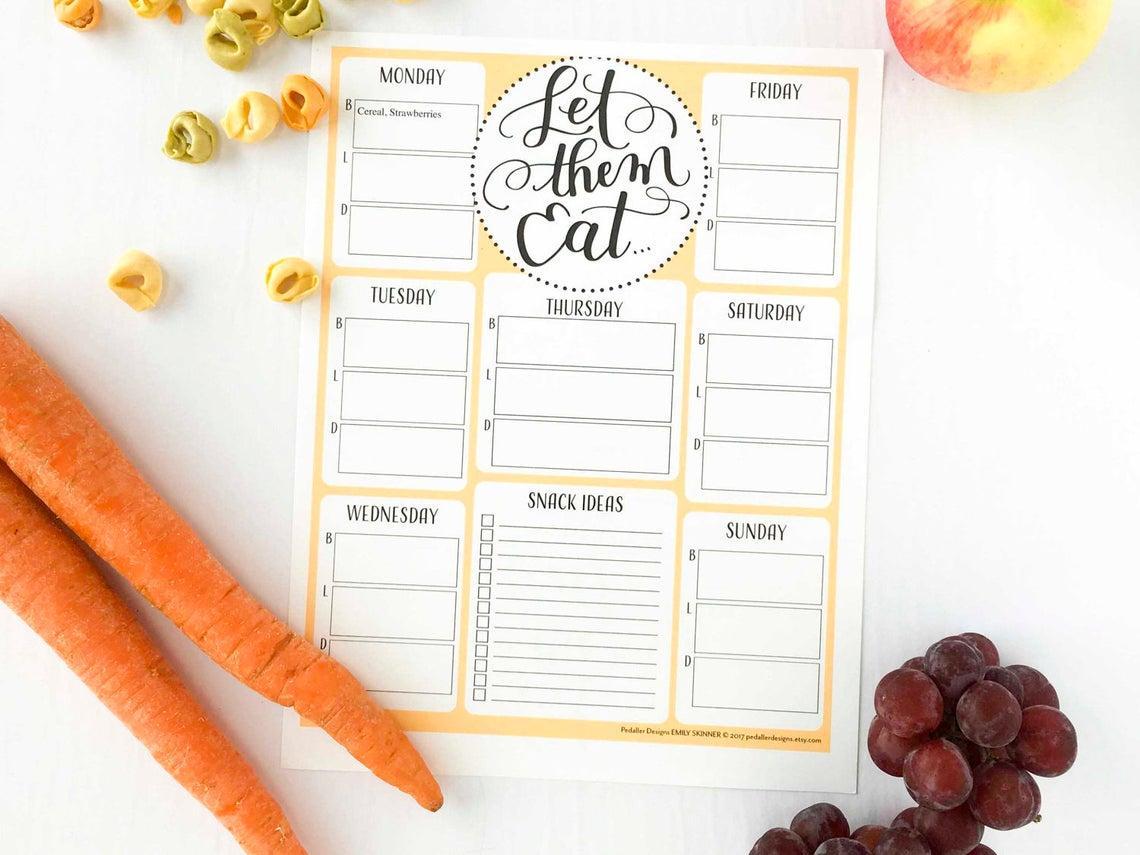 MONDAY
B Cereal, Strawberries
L
D
Let
them
Eat...
FRIDAY
B
L
D
TUESDAY
B
L
D
THURSDAY
B
L
D
SATURDAY
B
L
D
WEDNESDAY
B
L
D
SNACK IDEAS
SUNDAY
B
L
D
Pedaller Designs EMILY SKINNER © 2017 pedallerdesigns.etsy.com